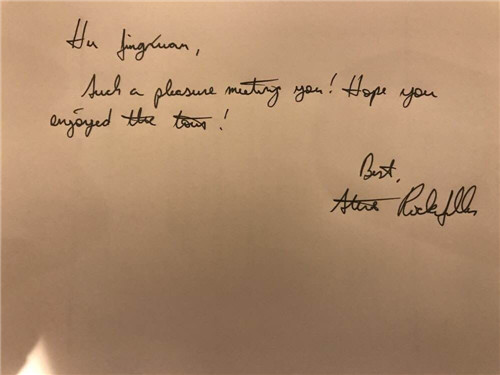 Hi Jingxuan,
Such a pleasure meeting you! Hope you
enjoyed the tour!
Best,
Steve Rockefeller